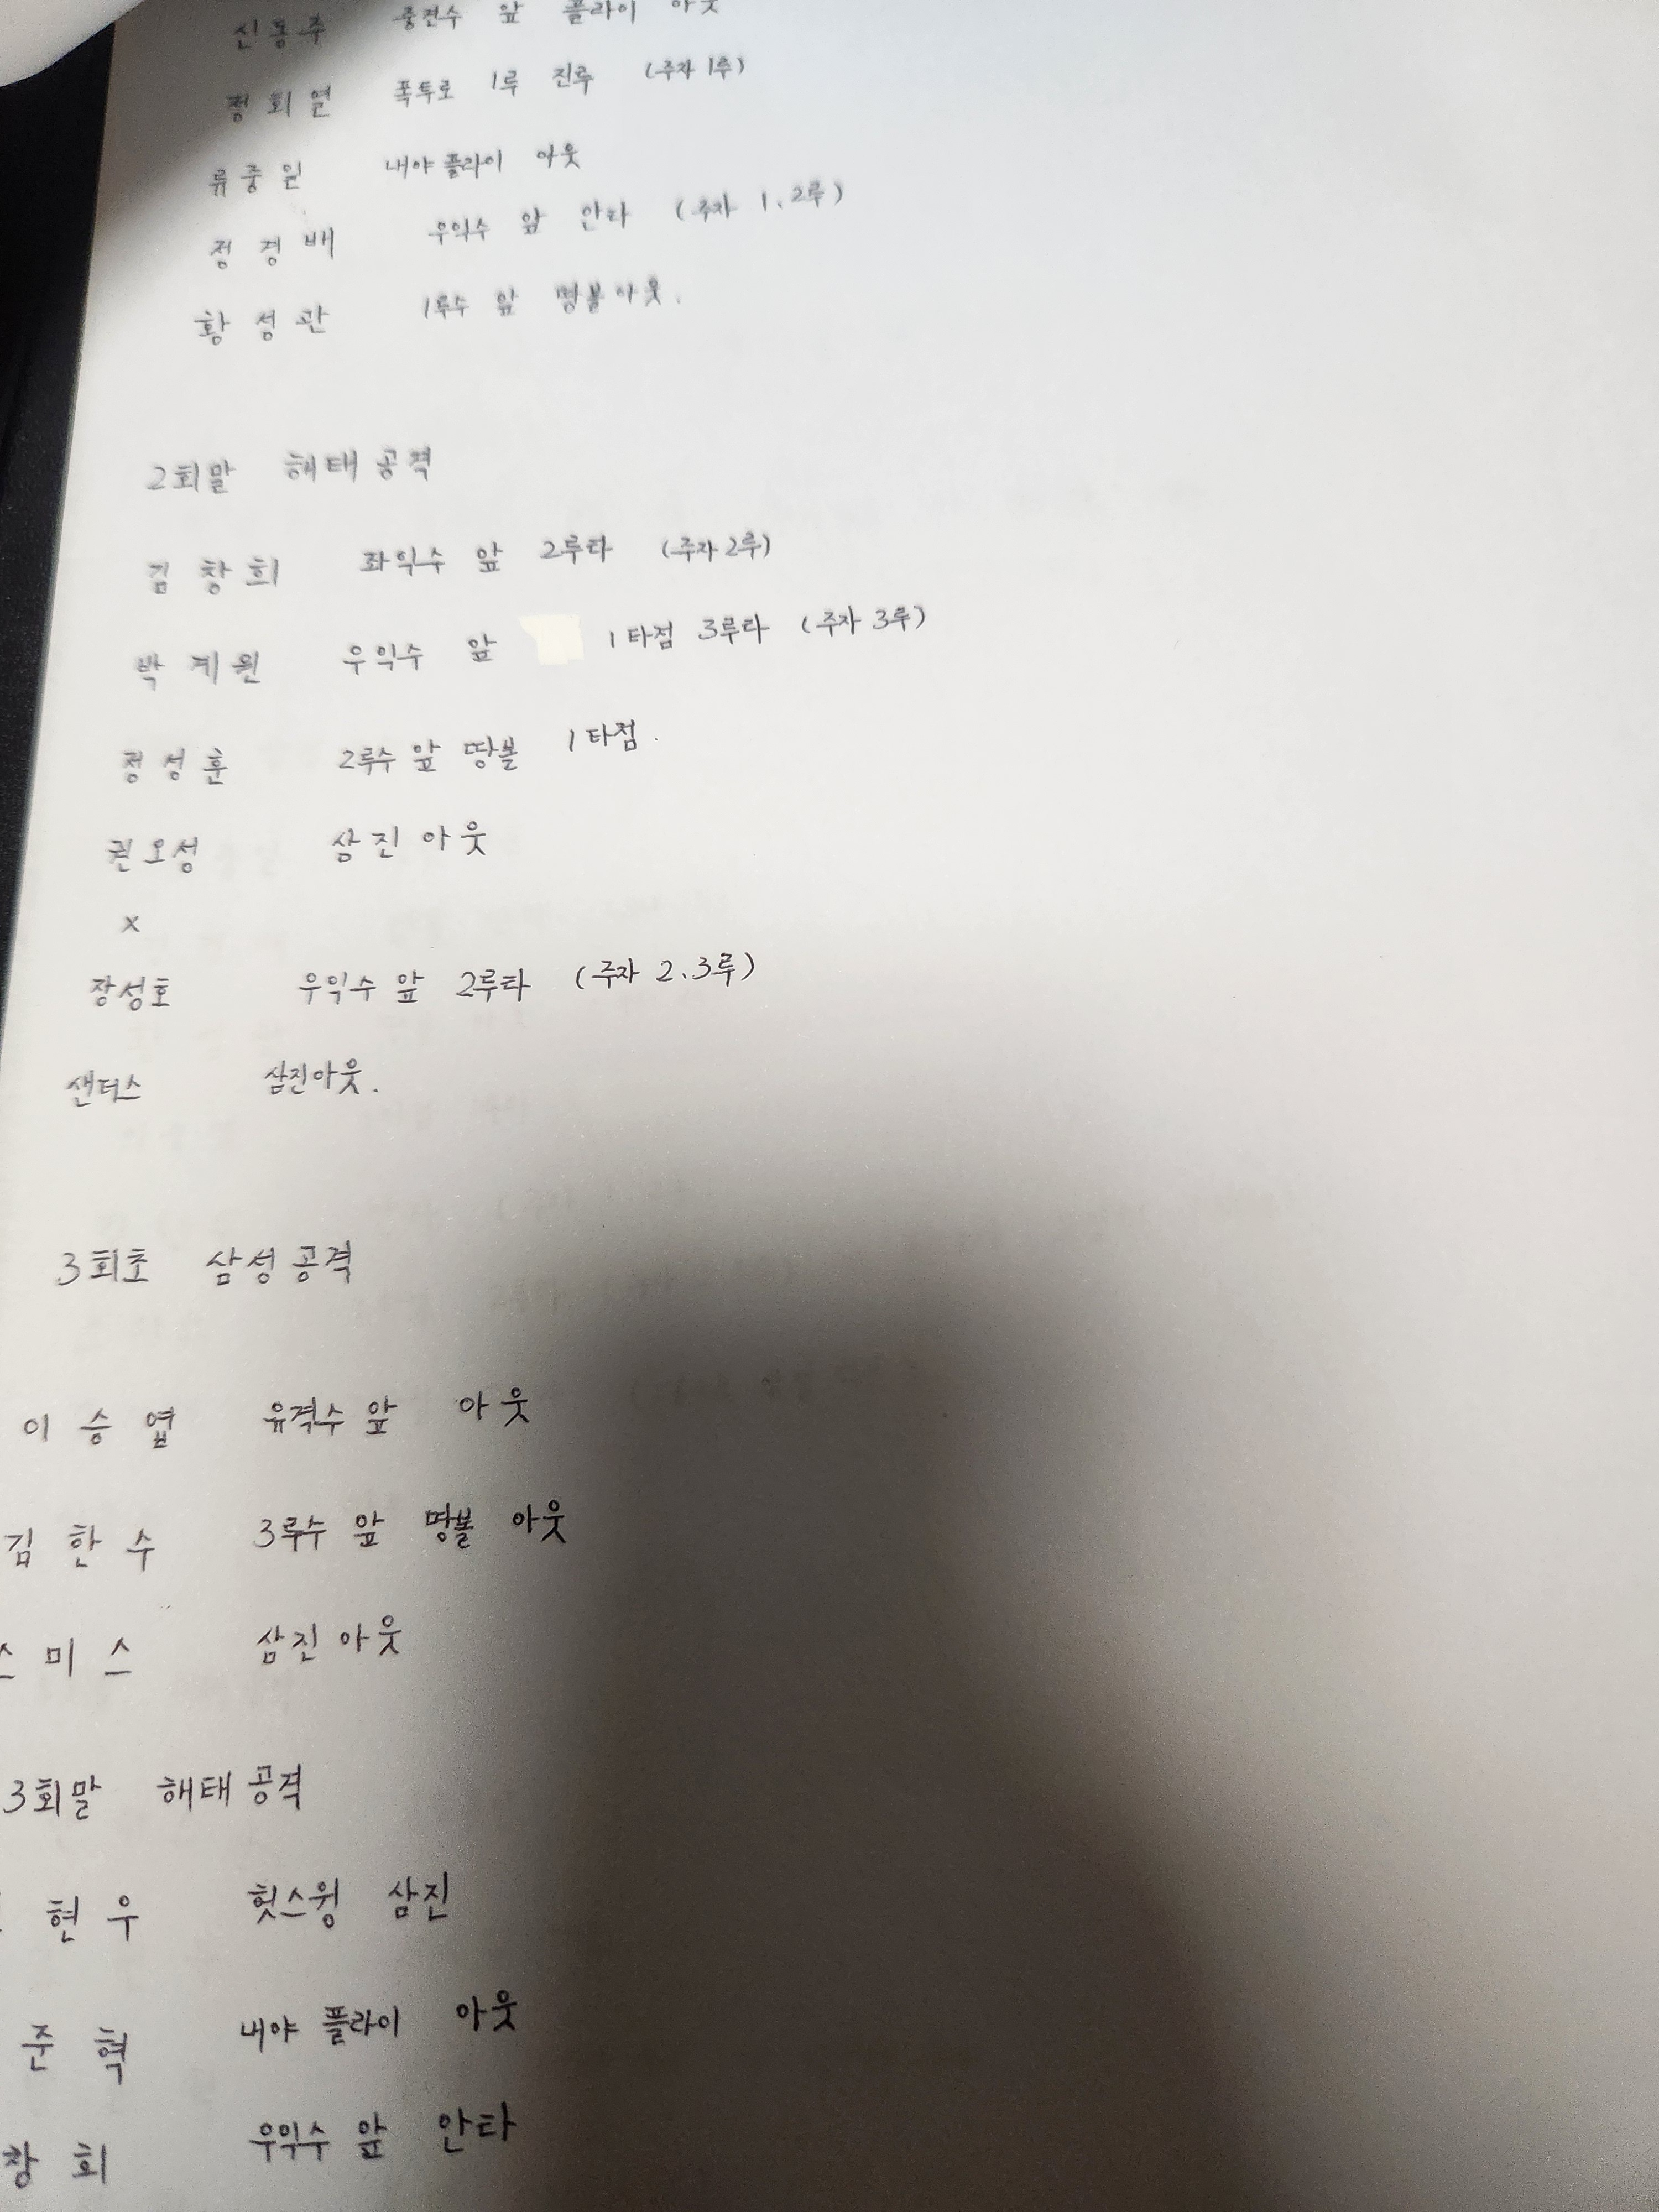 신동주 중견수 앞 플라이 아웃
정회열 폭투로 1루 진루 (주자 1루)
류중일 내야 플라이 아웃
정경배 우익수 앞 안타 (주자 1, 2루)
황성관 1루수 앞 땅볼 아웃.
2회말 해태 공격
김창희 좌익수 앞 2루타 (주자 2루)
박계원 우익수 앞 1타점 3루타 (주자 3루)
정성훈 2루수 앞 땅볼 1타점.
권오성 삼진 아웃
x
장성호 우익수 앞 2루타 (주자 2, 3루)
샌더스 삼진아웃.
3회초 삼성 공격
이승엽 유격수 앞 아웃
김한수 3루수 앞 땅볼 아웃
스미스 삼진 아웃
3회말 해태 공격
현우 헛스윙 삼진
준혁 내야 플라이 아웃
창희 우익수 앞 안타